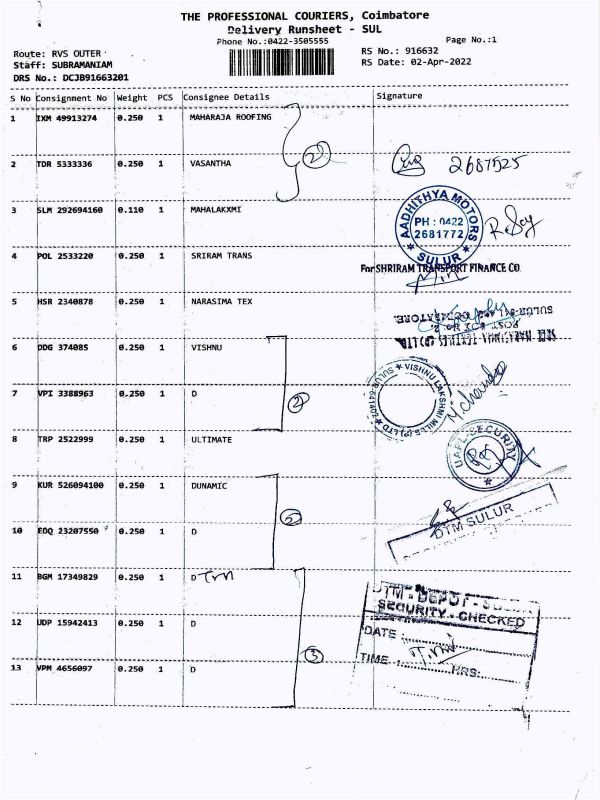 THE PROFESSIONAL COURIERS, Coimbatore
Delivery Runsheet - SUL
Phone No.:0422-3505555
Page No.:1
Route: RVS OUTER
RS No.: 916632
Staff: SUBRAMANIAM
RS Date: 02-Apr-2022
DRS No.: DCJB91663201
S No Consignment No Weight PCS Consignee Details Signature
1 IXM 49913274 0.250 1 MAHARAJA ROOFING
2
2 TDR 5333336 0.250 1 VASANTHA 2687525
3 SLM 292694160 0.110 1 MAHALAKXMI
AADHITHYA MOTORS
PH : 0422
2681772
SULUR
4 POL 2533220 0.250 1 SRIRAM TRANS
For SHRIRAM TRANSPORT FINANCE CO
5 HSR 2340878 0.250 1 NARASIMA TEX
6 DDG 374085 0.250 1 VISHNU
VISHNU LAKSHMI MILLS (P) LTD
7 VPI 3388963 0.250 1 D
2
8 TRP 2522999 0.250 1 ULTIMATE
UAFL-SECURITY
9 KUR 526094100 0.250 1 DUNAMIC
2
DTM SULUR
10 EDQ 23207550 0.250 1 D
11 BGM 17349829 0.250 1 D
DTM - DEPOT -
SECURITY - CHECKED
12 UDP 15942413 0.250 1 D
DATE :
3
TIME : HRS:
13 VPM 4656097 0.250 1 D